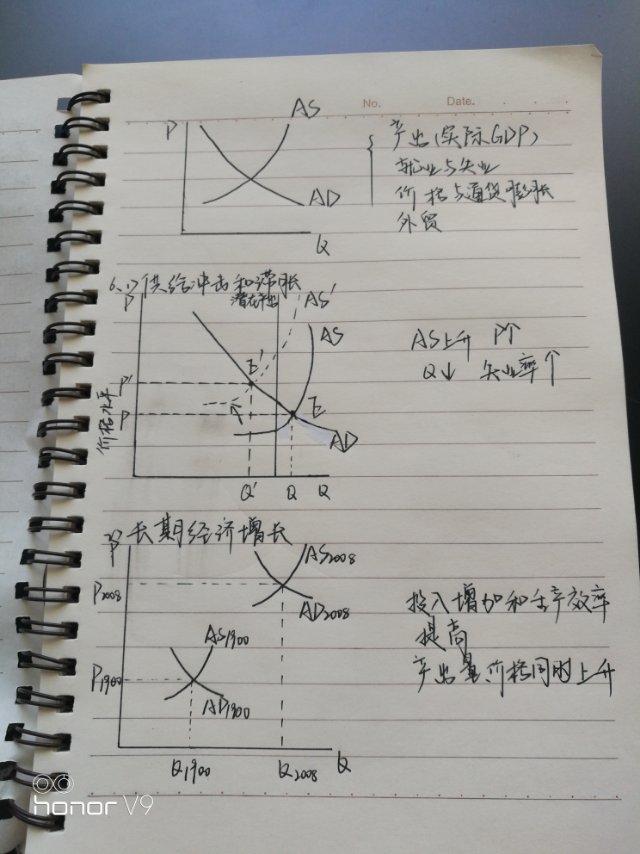 No. Date.
AS
P
产出(实际GDP)
就业与失业
价格与通货膨胀
AD
外贸
Q
供给冲击和滞胀
P
潜在产出
AS'
AS
AS上升 P↑
Q↓ 失业率↑
E'
P'
价格水平
P
E
AD
Q' Q Q
长期经济增长
P
AS2008
P2008
AD2008
投入增加和生产效率
提高
AS1900
产出量价格同时上升
P1900
AD1900
Q1900 Q2008 Q
honor V9